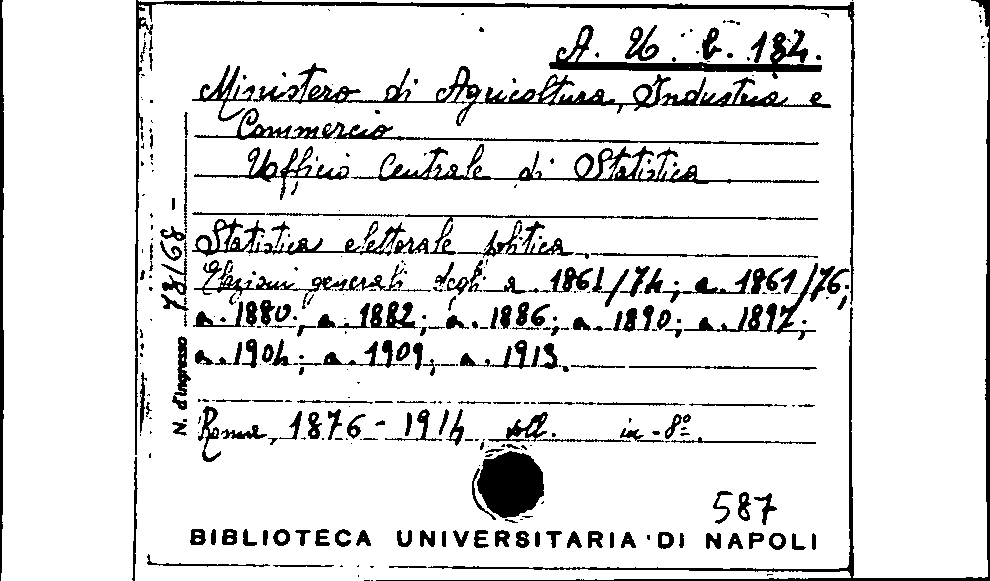 A. U. b. 184.
Ministero di Agricoltura, Industria e
Commercio
Ufficio Centrale di Statistica
Statistica elettorale politica.
Elezioni generali degli a. 1861/74; a. 1861/76;
a. 1880; a. 1882; a. 1886; a. 1890; a. 1897;
a. 1904; a. 1909; a. 1913.
Roma, 1876-1914, voll. in-8º.
N. d'Ingresso 78168 -
587
BIBLIOTECA UNIVERSITARIA DI NAPOLI